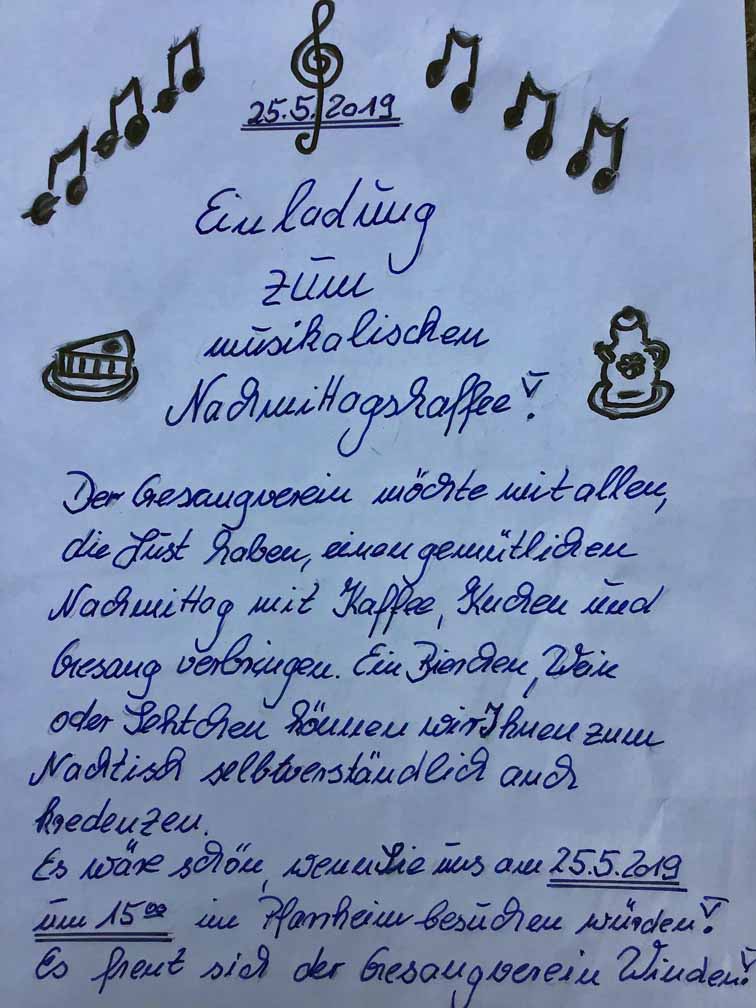 25.5.2019
Einladung
zum
musikalischen
Nachmittagskaffee!
Der Gesangverein möchte mit allen,
die Lust haben, einen gemütlichen
Nachmittag mit Kaffee, Kuchen und
Gesang verbringen. Ein Bierchen, Wein
oder Sektchen können wir Ihnen zum
Nachtisch selbtverständlich auch
kredenzen.
Es wäre schön, wenn Sie uns am 25.5.2019
um 15 00 im Pfarrheim besuchen würden!
Es freut sich der Gesangverein Winden!